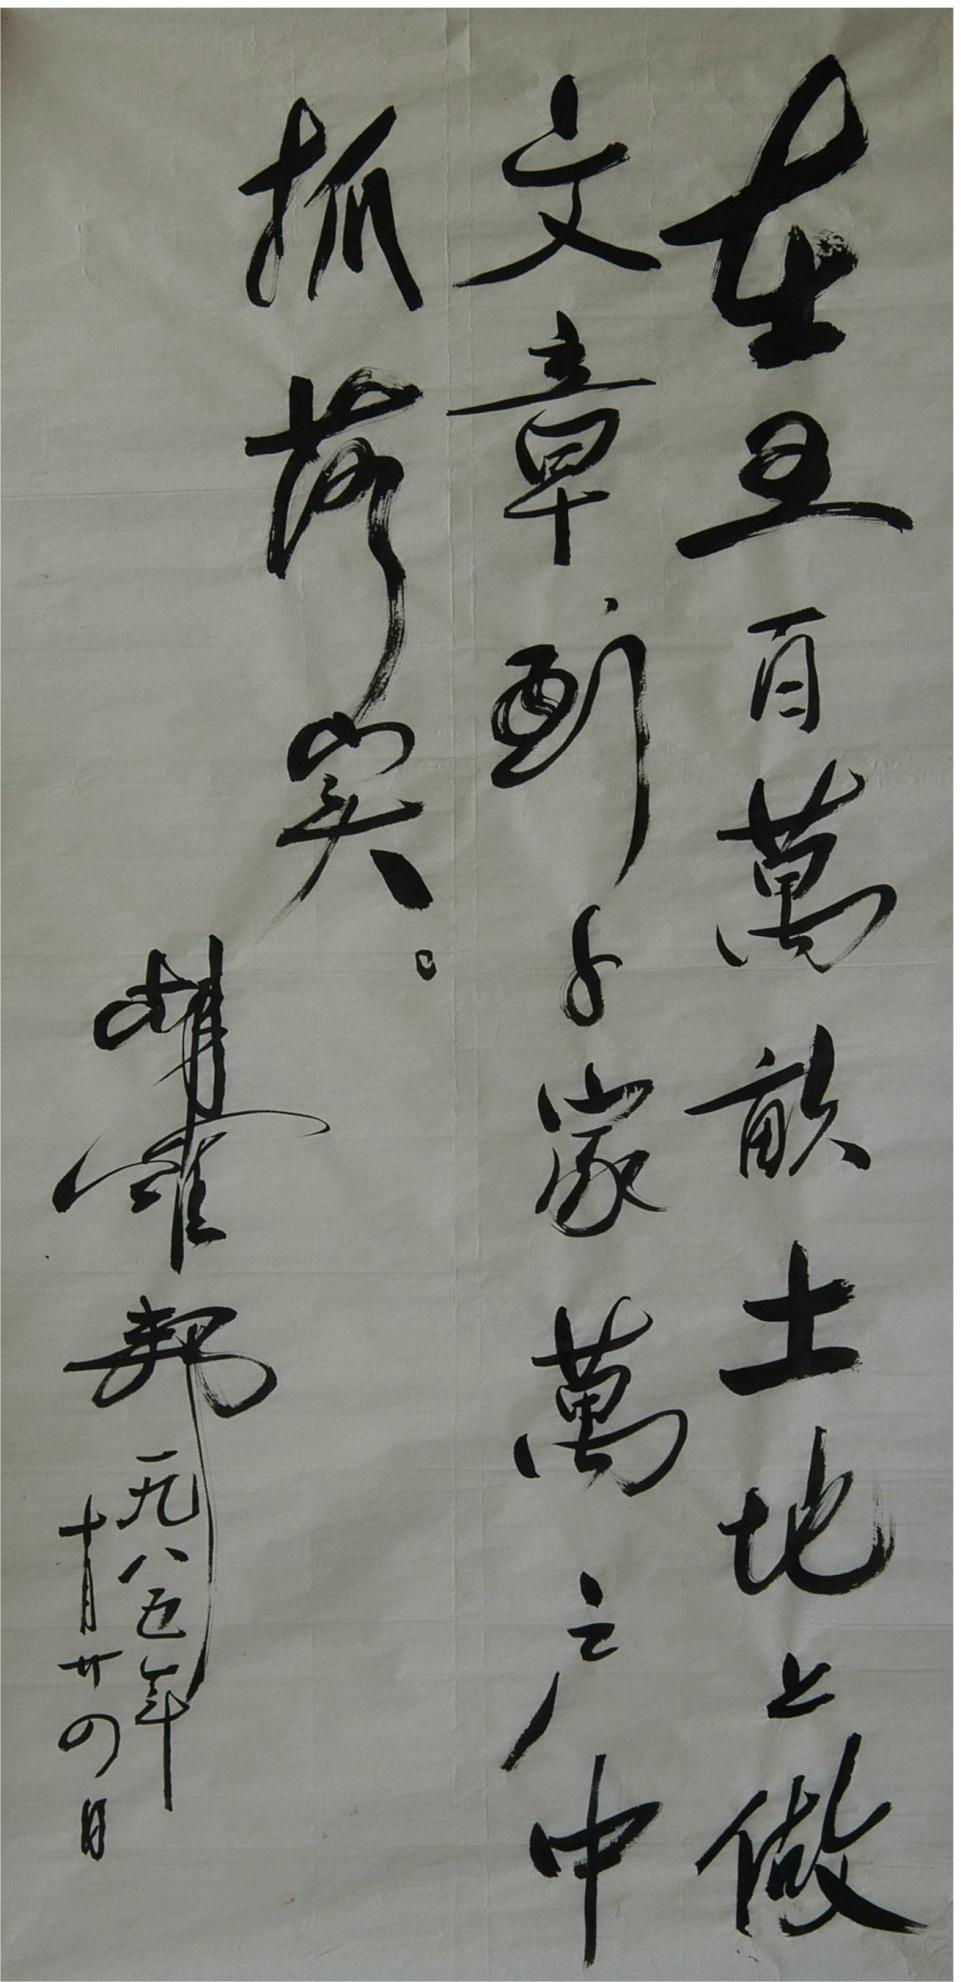 在五百萬畝土地上做
文章到千家萬户中
抓落实。
胡耀邦
一九八五年
十月廿四日